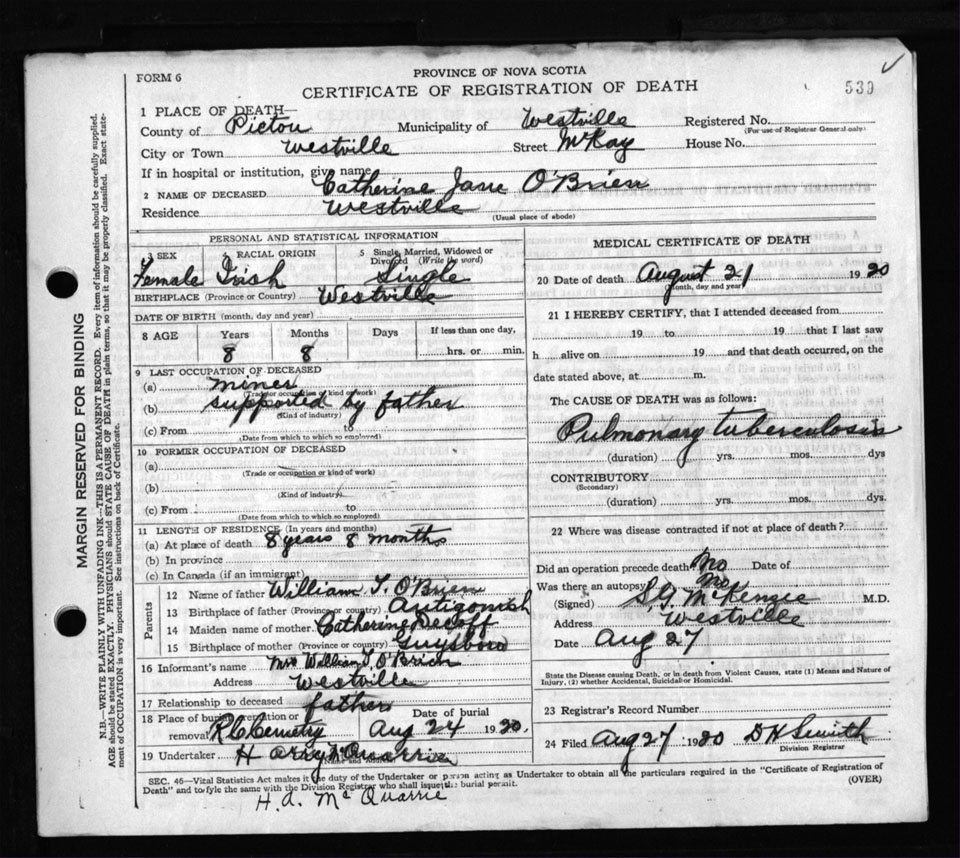 FORM 6
PROVINCE OF NOVA SCOTIA
CERTIFICATE OF REGISTRATION OF DEATH
539
1 PLACE OF DEATH—
County of Pictou Municipality of Westville Registered No.
(For use of Registrar General only)
City or Town Westville Street McKay House No.
If in hospital or institution, give name
2 NAME OF DECEASED Catherine Jane O'Brien
Residence Westville
(Usual place of abode)
PERSONAL AND STATISTICAL INFORMATION
3 SEX 4 RACIAL ORIGIN 5 Single, Married, Widowed or Divorced (Write the word)
Female Irish Single
BIRTHPLACE (Province or Country) Westville
DATE OF BIRTH (month, day and year)
8 AGE Years Months Days If less than one day,
8 8 hrs. or min.
9 LAST OCCUPATION OF DECEASED
(a) miner
(Trade or occupation or kind of work)
(b) supported by father
(Kind of industry)
(c) From to
(Date from which to which so employed)
10 FORMER OCCUPATION OF DECEASED
(a)
(Trade or occupation or kind of work)
(b)
(Kind of industry)
(c) From to
(Date from which to which so employed)
11 LENGTH OF RESIDENCE (In years and months)
(a) At place of death 8 years 8 months
(b) In province
(c) In Canada (if an immigrant)
Parents
12 Name of father William T. O'Brien
13 Birthplace of father (Province or country) Antigonish
14 Maiden name of mother Catherine
15 Birthplace of mother (Province or country) Guysboro
16 Informant's name Mrs William J. O'Brien
Address Westville
17 Relationship to deceased father
18 Place of burial, cremation or removal R C Cemetry Date of burial Aug 24 1920.
19 Undertaker Harry McQuarrie
(Name and Address)
MEDICAL CERTIFICATE OF DEATH
20 Date of death August 21 1920
(month, day and year)
21 I HEREBY CERTIFY, that I attended deceased from
19 to 19 that I last saw
h alive on 19 and that death occurred, on the
date stated above, at m.
The CAUSE OF DEATH was as follows:
Pulmonary tuberculosis
(duration) yrs. mos. dys
CONTRIBUTORY
(Secondary)
(duration) yrs. mos. dys.
22 Where was disease contracted if not at place of death?
Did an operation precede death? No Date of
Was there an autopsy? No
(Signed) S. G. McKenzie M.D.
Address Westville
Date Aug 27
State the Disease causing Death, or in death from Violent Causes, state (1) Means and Nature of
Injury, (2) whether Accidental, Suicidal or Homicidal.
23 Registrar's Record Number
24 Filed Aug 27 1920 D H Smith
Division Registrar
SEC. 46—Vital Statistics Act makes it the duty of the Undertaker or person acting as Undertaker to obtain all the particulars required in the "Certificate of Registration of
Death" and to file the same with the Division Registrar who shall issue the burial permit.
(OVER)
H. A. McQuarrie
MARGIN RESERVED FOR BINDING
N.B.—WRITE PLAINLY WITH UNFADING INK—THIS IS A PERMANENT RECORD. Every item of information should be carefully supplied.
AGE should be stated EXACTLY. PHYSICIANS should STATE CAUSE OF DEATH in plain terms, so that it may be properly classified. Exact statement of OCCUPATION is very important. See instructions on back of Certificate.